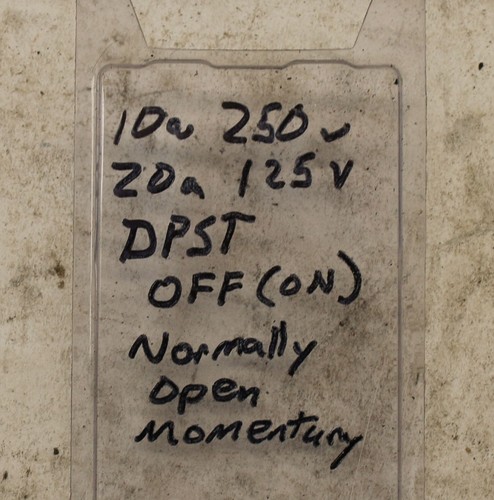 10a 250v
20a 125V
DPST
OFF (ON)
Normally
Open
Momentury